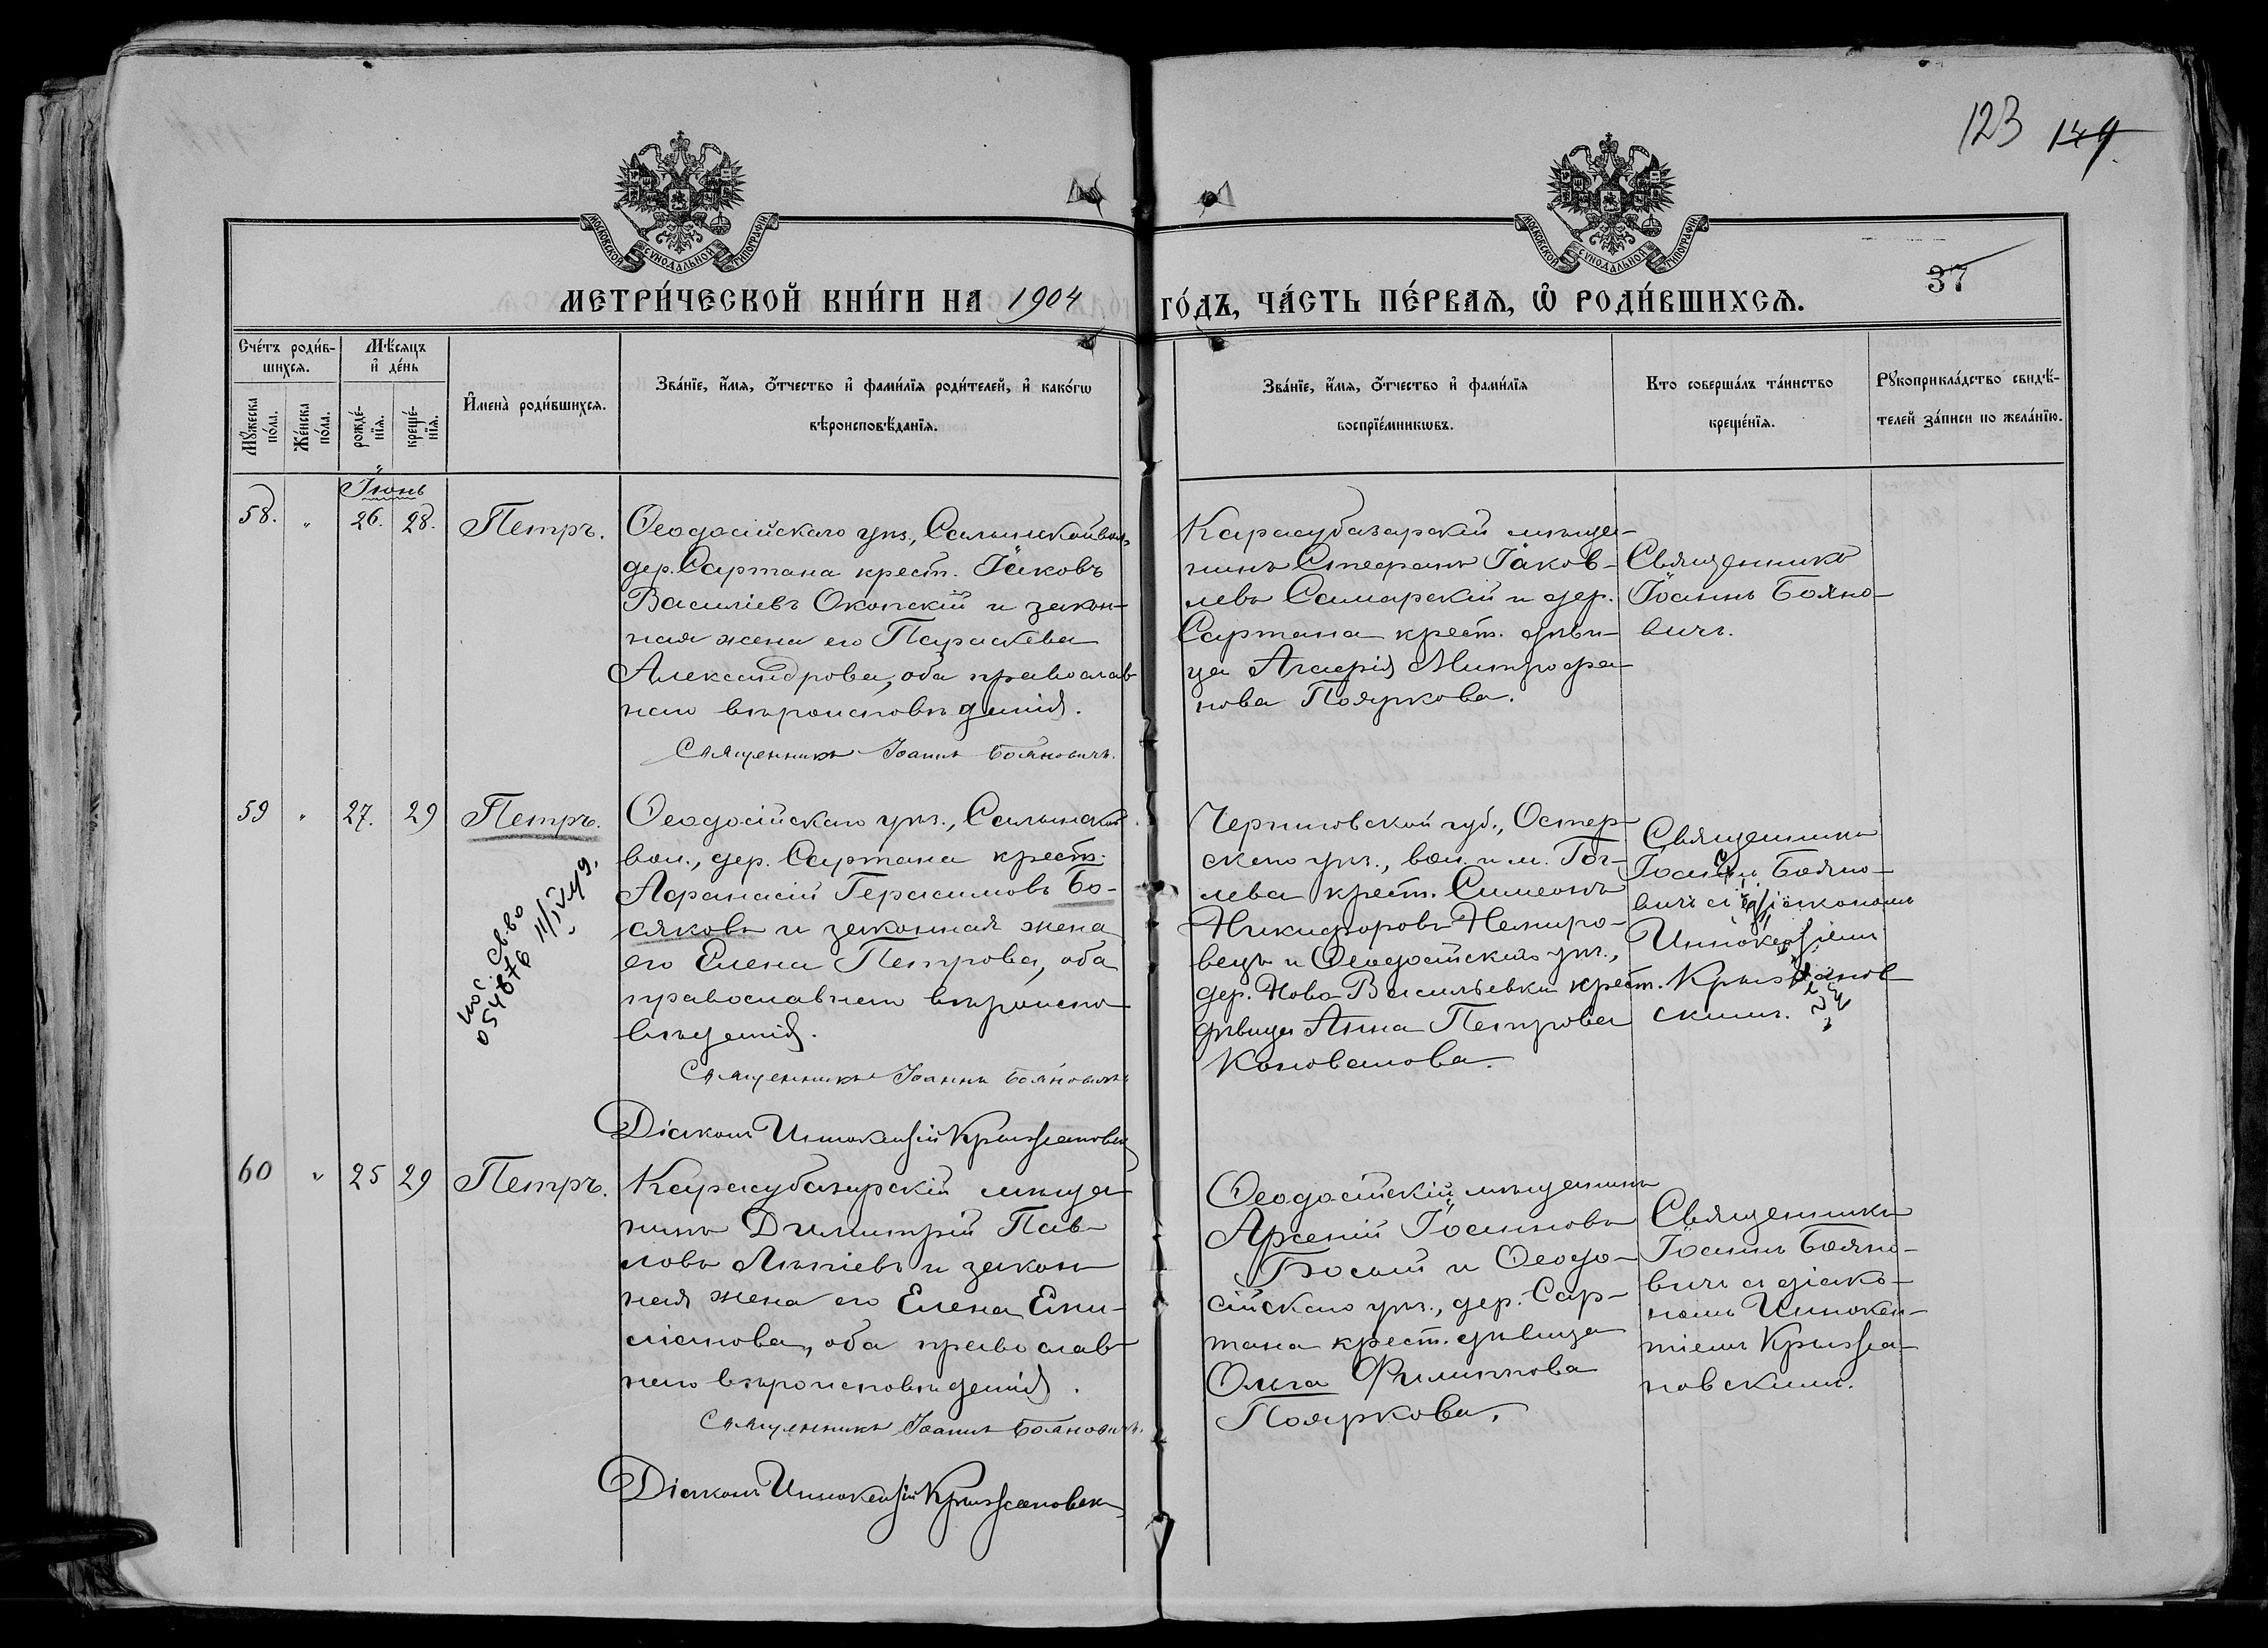 123 149
37
МОСКОВСКОЙ СѴНОДАЛЬНОЙ ТИПОГРАФІИ
МОСКОВСКОЙ СѴНОДАЛЬНОЙ ТИПОГРАФІИ
МЕТРИ́ЧЕСКОЙ КНИ́ГИ НА 1904 ГО́ДЪ, ЧА́СТЬ ПЕ́РВАѦ, Ѡ҆ РОДИ́ВШИХСѦ.
Сче́тъ роди́в-
шихсѧ.
Мꙋ́жеска по́ла.
Же́нска по́ла.
Мѣ́сяцъ
и҆ де́нь
рожде́-
нїѧ.
креще́-
нїѧ.
И҆мена̀ роди́вшихсѧ.
Зва́нїе, и҆́мѧ, ѻ҆́тчество и҆ фами́лїѧ роди́телей, и҆ како́гѡ
вѣроисповѣ́данїѧ.
Зва́нїе, и҆́мѧ, ѻ҆́тчество и҆ фами́лїѧ
воспрїе́мникѡвъ.
Кто соверша́лъ та́инство
креще́нїѧ.
Рꙋкоприкла́дство свидѣ́-
телей за́писи по жела́нїю.
Іюнь
58. " 26. 28. Петръ.
Ѳеодосійскаго уѣз., Салынской вол.,
дер. Сартана крест. Іаковъ
Василіевъ Окопскій и закон-
ная жена его Параскева
Александрова, оба православ-
наго вѣроисповѣданія.
Священникъ Іоаннъ Бояновичъ.
Карасубазарскій мѣща-
нинъ Стефанъ Іаков-
левъ Самарскій и дер.
Сартана крест. дѣви-
ца Агафія Митрофа-
нова Пояркова.
Священникъ
Іоаннъ Бояно-
вичъ.
59 " 27. 29 Петръ.
Ѳеодосійскаго уѣз., Салынской
вол., дер. Сартана крест.
Аѳанасій Герасимовъ Бо-
сяковъ и законная жена
его Елена Петрова, оба
православнаго вѣроиспо-
вѣданія.
Священникъ Іоаннъ Бояновичъ
Діаконъ Иннокентій Крыжановск
св-во
054876 11/IV 49.
Черниговской губ., Остер-
скаго уѣз., вол. и м. Гог-
лева крест. Симеонъ
Никифоровъ Немиро-
вецъ и Ѳеодосійскаго уѣз.,
дер. Ново Васильевки крест.
дѣвица Анна Петрова
Коновалова.
Священникъ
Іоаннъ Бояно-
вичъ съ діакономъ
Иннокентіемъ
Крыжанов-
скимъ.
60 " 25 29 Петръ.
Карасубазарскій мѣща-
нинъ Димитрій Пав-
ловъ Лѣпіевъ и закон-
ная жена его Елена Еми-
ліанова, оба православ-
наго вѣроисповѣданія.
Священникъ Іоаннъ Бояновичъ.
Діаконъ Иннокентій Крыжановск
Ѳеодосійскій мѣщанинъ
Арсеній Іоанновъ
Босый и Ѳеодо-
сійскаго уѣз., дер. Сар-
тана крест. дѣвица
Ольга Филиппова
Пояркова.
Священникъ
Іоаннъ Бояно-
вичъ съ діако-
номъ Иннокен-
тіемъ Крыжа-
новскимъ.